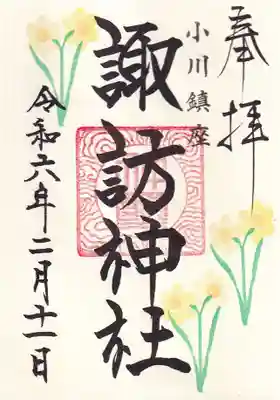 奉拝
小川鎮座
諏訪神社
令和六年二月十一日